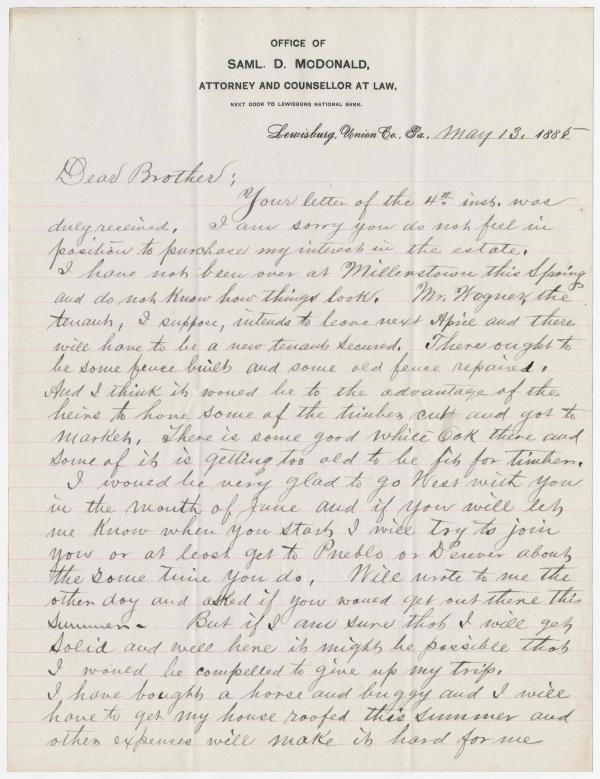 OFFICE OF
SAML. D. McDONALD,
ATTORNEY AND COUNSELLOR AT LAW,
NEXT DOOR TO LEWISBURG NATIONAL BANK.
Lewisburg, Union Co., Pa. May 13, 1885
Dear Brother;
Your letter of the 4th inst. was
duly received. I am sorry you do not feel in
position to purchase my interest in the estate.
I have not been over at Millerstown this Spring
and do not know how things look. Mr. Wagner, the
tenant, I suppose, intends to leave next April and there
will have to be a new tenant secured. There ought to
be some fence built and some old fence repaired.
And I think it would be to the advantage of the
heirs to have some of the timber cut and got to
market. There is some good white Oak there and
some of it is getting too old to be fit for timber.
I would be very glad to go West with you
in the month of June and if you will let
me know when you start I will try to join
you or at least get to Pueblo or Denver about
the same time you do. Will wrote to me the
other day and asked if you would get out there this
summer. But if I am sure that I will get
solid and well here it might be possible that
I would be compelled to give up my trip.
I have bought a horse and buggy and I will
have to get my house roofed this summer and
other expenses will make it hard for me